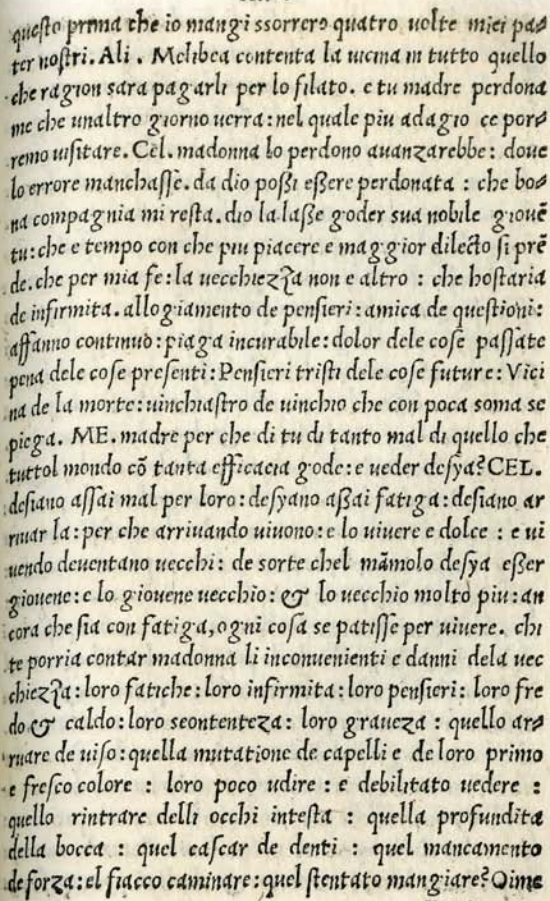 questo prima che io mangi ssorrero quatro uolte miei pa-
ter nostri. Ali . Melibea contenta la uicina in tutto quello
che ragion sara pagarli per lo filato. e tu madre perdona
me che unaltro giorno uerra: nel quale piu adagio ce por-
remo uisitare. Cel. madonna lo perdono auanzarebbe: doue
lo errore manchasse. da dio possi essere perdonata : che bo-
na compagnia mi resta. dio la lasse goder sua nobile giouē
tu: che e tempo con che piu piacere e maggior dilecto si prē
de. che per mia fe: la uecchiezza non e altro : che hostaria
de infirmita. allogiamento de pensieri: amica de questioni:
affanno continuo: piaga incurabile: dolor dele cose passate
pena dele cose presenti: Pensieri tristi dele cose future: Vici
na de la morte: uinchiastro de uinchio che con poca soma se
piega. ME. madre per che di tu di tanto mal di quello che
tuttol mondo cō tanta efficacia gode: e ueder desya? CEL.
desiano assai mal per loro: desyano assai fatiga: desiano ar
riuar la: per che arriuando uiuono: e lo uiuere e dolce : e ui
uendo deuentano uecchi: de sorte chel māmolo desya esser
giouene: e lo giouene uecchio: & lo uecchio molto piu: an
cora che sia con fatiga, ogni cosa se patisse per uiuere. chi
te porria contar madonna li inconuenienti e danni dela uec
chiezza: loro fatiche: loro infirmita: loro pensieri: loro fre
do & caldo: loro seontenteza: loro graueza : quello ar-
ruare de uiso: quella mutatione de capelli e de loro primo
e fresco colore : loro poco udire : e debilitato uedere :
quello rintrare delli occhi intesta : quella profundita
della bocca : quel cascar de denti : quel mancamento
de forza: el fiacco caminare: quel stentato mangiare? Oime